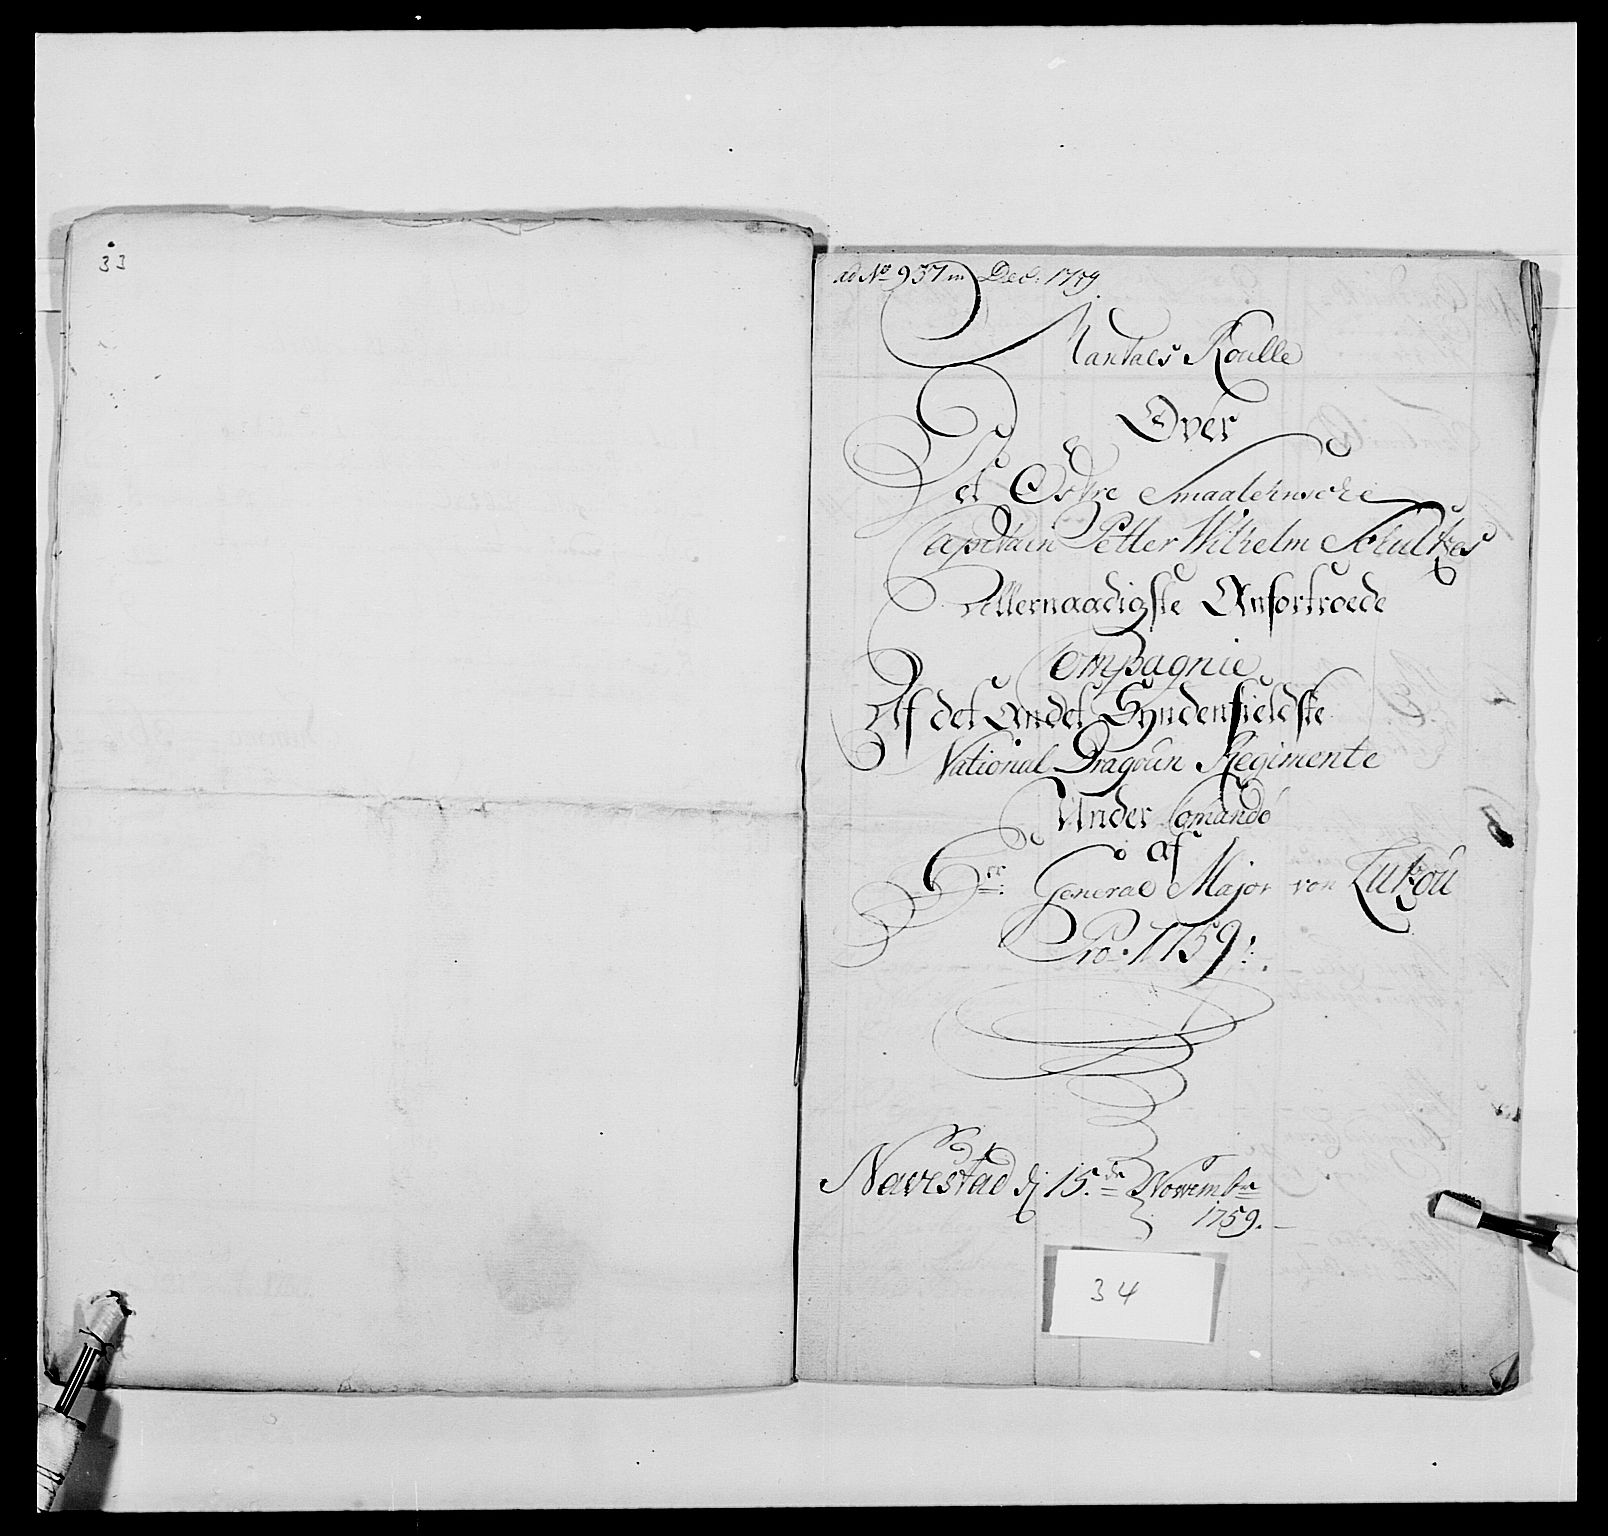 33
ad No 937 in Dec. 1759.
Mantaes Roulle
Over
Det Østre Smaalehnsche
Capitain Petter Wilhelm Schultzes
Allernaadigste Anfortroede
Compagnie
Af det Andet Syndenfieldske
National Dragoun Regimente
Under Comando
af
Hr: General Major von Lützou
Pro: 1759:
Navestad dj 15de Novembr
1759.
34